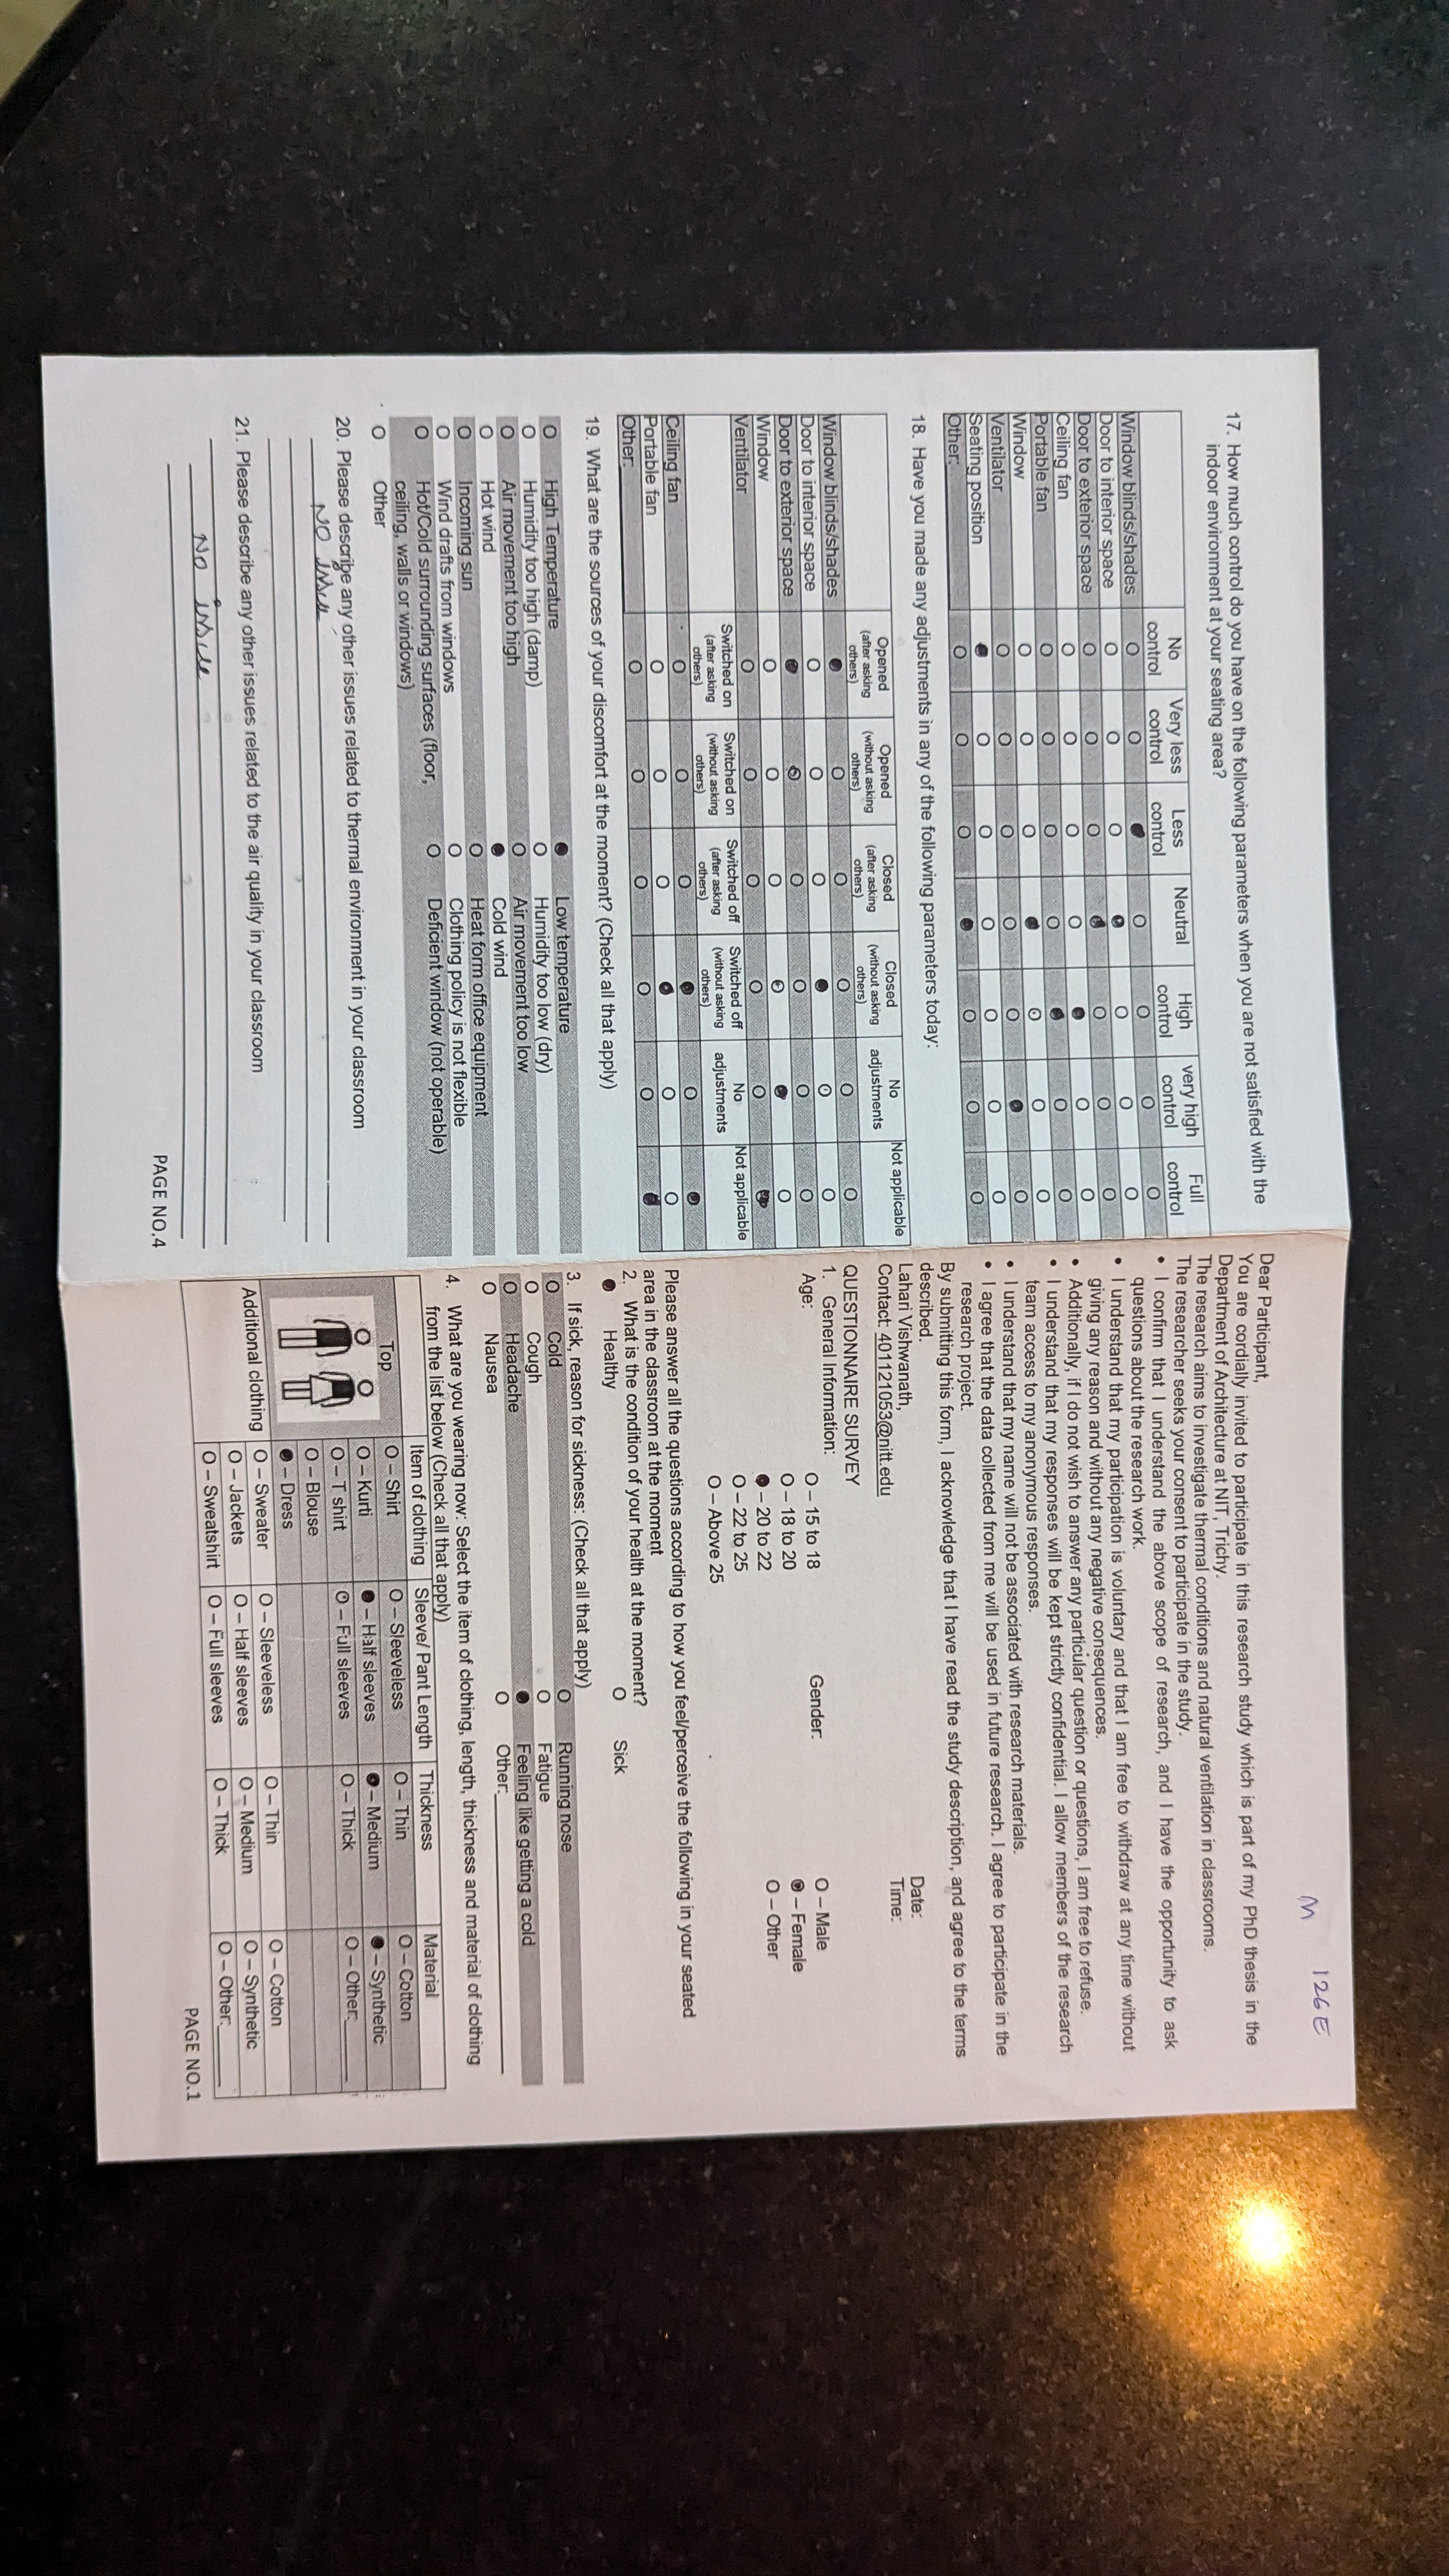 17. How much control do you have on the following parameters when you are not satisfied with the
indoor environment at your seating area?
No control Very less control Less control Neutral High control very high control Full control
Window blinds/shades O O ● O O O O
Door to interior space O O O ● O O O
Door to exterior space O O O ● O O O
Ceiling fan O O O O ● O O
Portable fan O O O O ● O O
Window O O O ● O O O
Ventilator O O O O O ● O
Seating position ● O O O O O O
Other: O O O ● O O O
18. Have you made any adjustments in any of the following parameters today:
Opened (after asking others) Opened (without asking others) Closed (after asking others) Closed (without asking others) No adjustments Not applicable
Window blinds/shades ● O O O O O
Door to interior space O O O ● O O
Door to exterior space ● O O O O O
Window O O O O ● O
Ventilator O O O O O ●
Switched on (after asking others) Switched on (without asking others) Switched off (after asking others) Switched off (without asking others) No adjustments Not applicable
Ceiling fan O O O ● O ●
Portable fan O O O ● O O
Other: O O O O O ●
19. What are the sources of your discomfort at the moment? (Check all that apply)
O High Temperature ● Low temperature
O Humidity too high (damp) O Humidity too low (dry)
O Air movement too high O Air movement too low
O Hot wind ● Cold wind
O Incoming sun O Heat form office equipment
O Wind drafts from windows O Clothing policy is not flexible
O Hot/Cold surrounding surfaces (floor, O Deficient window (not operable)
ceiling, walls or windows)
O Other
20. Please describe any other issues related to thermal environment in your classroom
NO issue
21. Please describe any other issues related to the air quality in your classroom
No issue
PAGE NO.4
M 126E
Dear Participant,
You are cordially invited to participate in this research study which is part of my PhD thesis in the
Department of Architecture at NIT, Trichy.
The research aims to investigate thermal conditions and natural ventilation in classrooms.
The researcher seeks your consent to participate in the study.
• I confirm that I understand the above scope of research, and I have the opportunity to ask
questions about the research work.
• I understand that my participation is voluntary and that I am free to withdraw at any time without
giving any reason and without any negative consequences.
• Additionally, if I do not wish to answer any particular question or questions, I am free to refuse.
• I understand that my responses will be kept strictly confidential. I allow members of the research
team access to my anonymous responses.
• I understand that my name will not be associated with research materials.
• I agree that the data collected from me will be used in future research. I agree to participate in the
research project.
By submitting this form, I acknowledge that I have read the study description, and agree to the terms
described.
Lahari Vishwanath, Date:
Contact: 401121053@nitt.edu Time:
QUESTIONNAIRE SURVEY
1. General Information:
Age: O – 15 to 18 Gender: O – Male
O – 18 to 20 ● – Female
● – 20 to 22 O – Other
O – 22 to 25
O – Above 25
Please answer all the questions according to how you feel/perceive the following in your seated
area in the classroom at the moment
2. What is the condition of your health at the moment?
● Healthy O Sick
3. If sick, reason for sickness: (Check all that apply)
O Cold O Running nose
O Cough O Fatigue
O Headache ● Feeling like getting a cold
O Nausea O Other:
4. What are you wearing now: Select the item of clothing, length, thickness and material of clothing
from the list below (Check all that apply)
Item of clothing Sleeve/ Pant Length Thickness Material
Top O – Shirt O – Sleeveless O – Thin O – Cotton
O – Kurti ● – Half sleeves ● – Medium ● – Synthetic
O – T shirt O – Full sleeves O – Thick O – Other:
O – Blouse
● – Dress
Additional clothing O – Sweater O – Sleeveless O – Thin O – Cotton
O – Jackets O – Half sleeves O – Medium O – Synthetic
O – Sweatshirt O – Full sleeves O – Thick O – Other:
PAGE NO.1